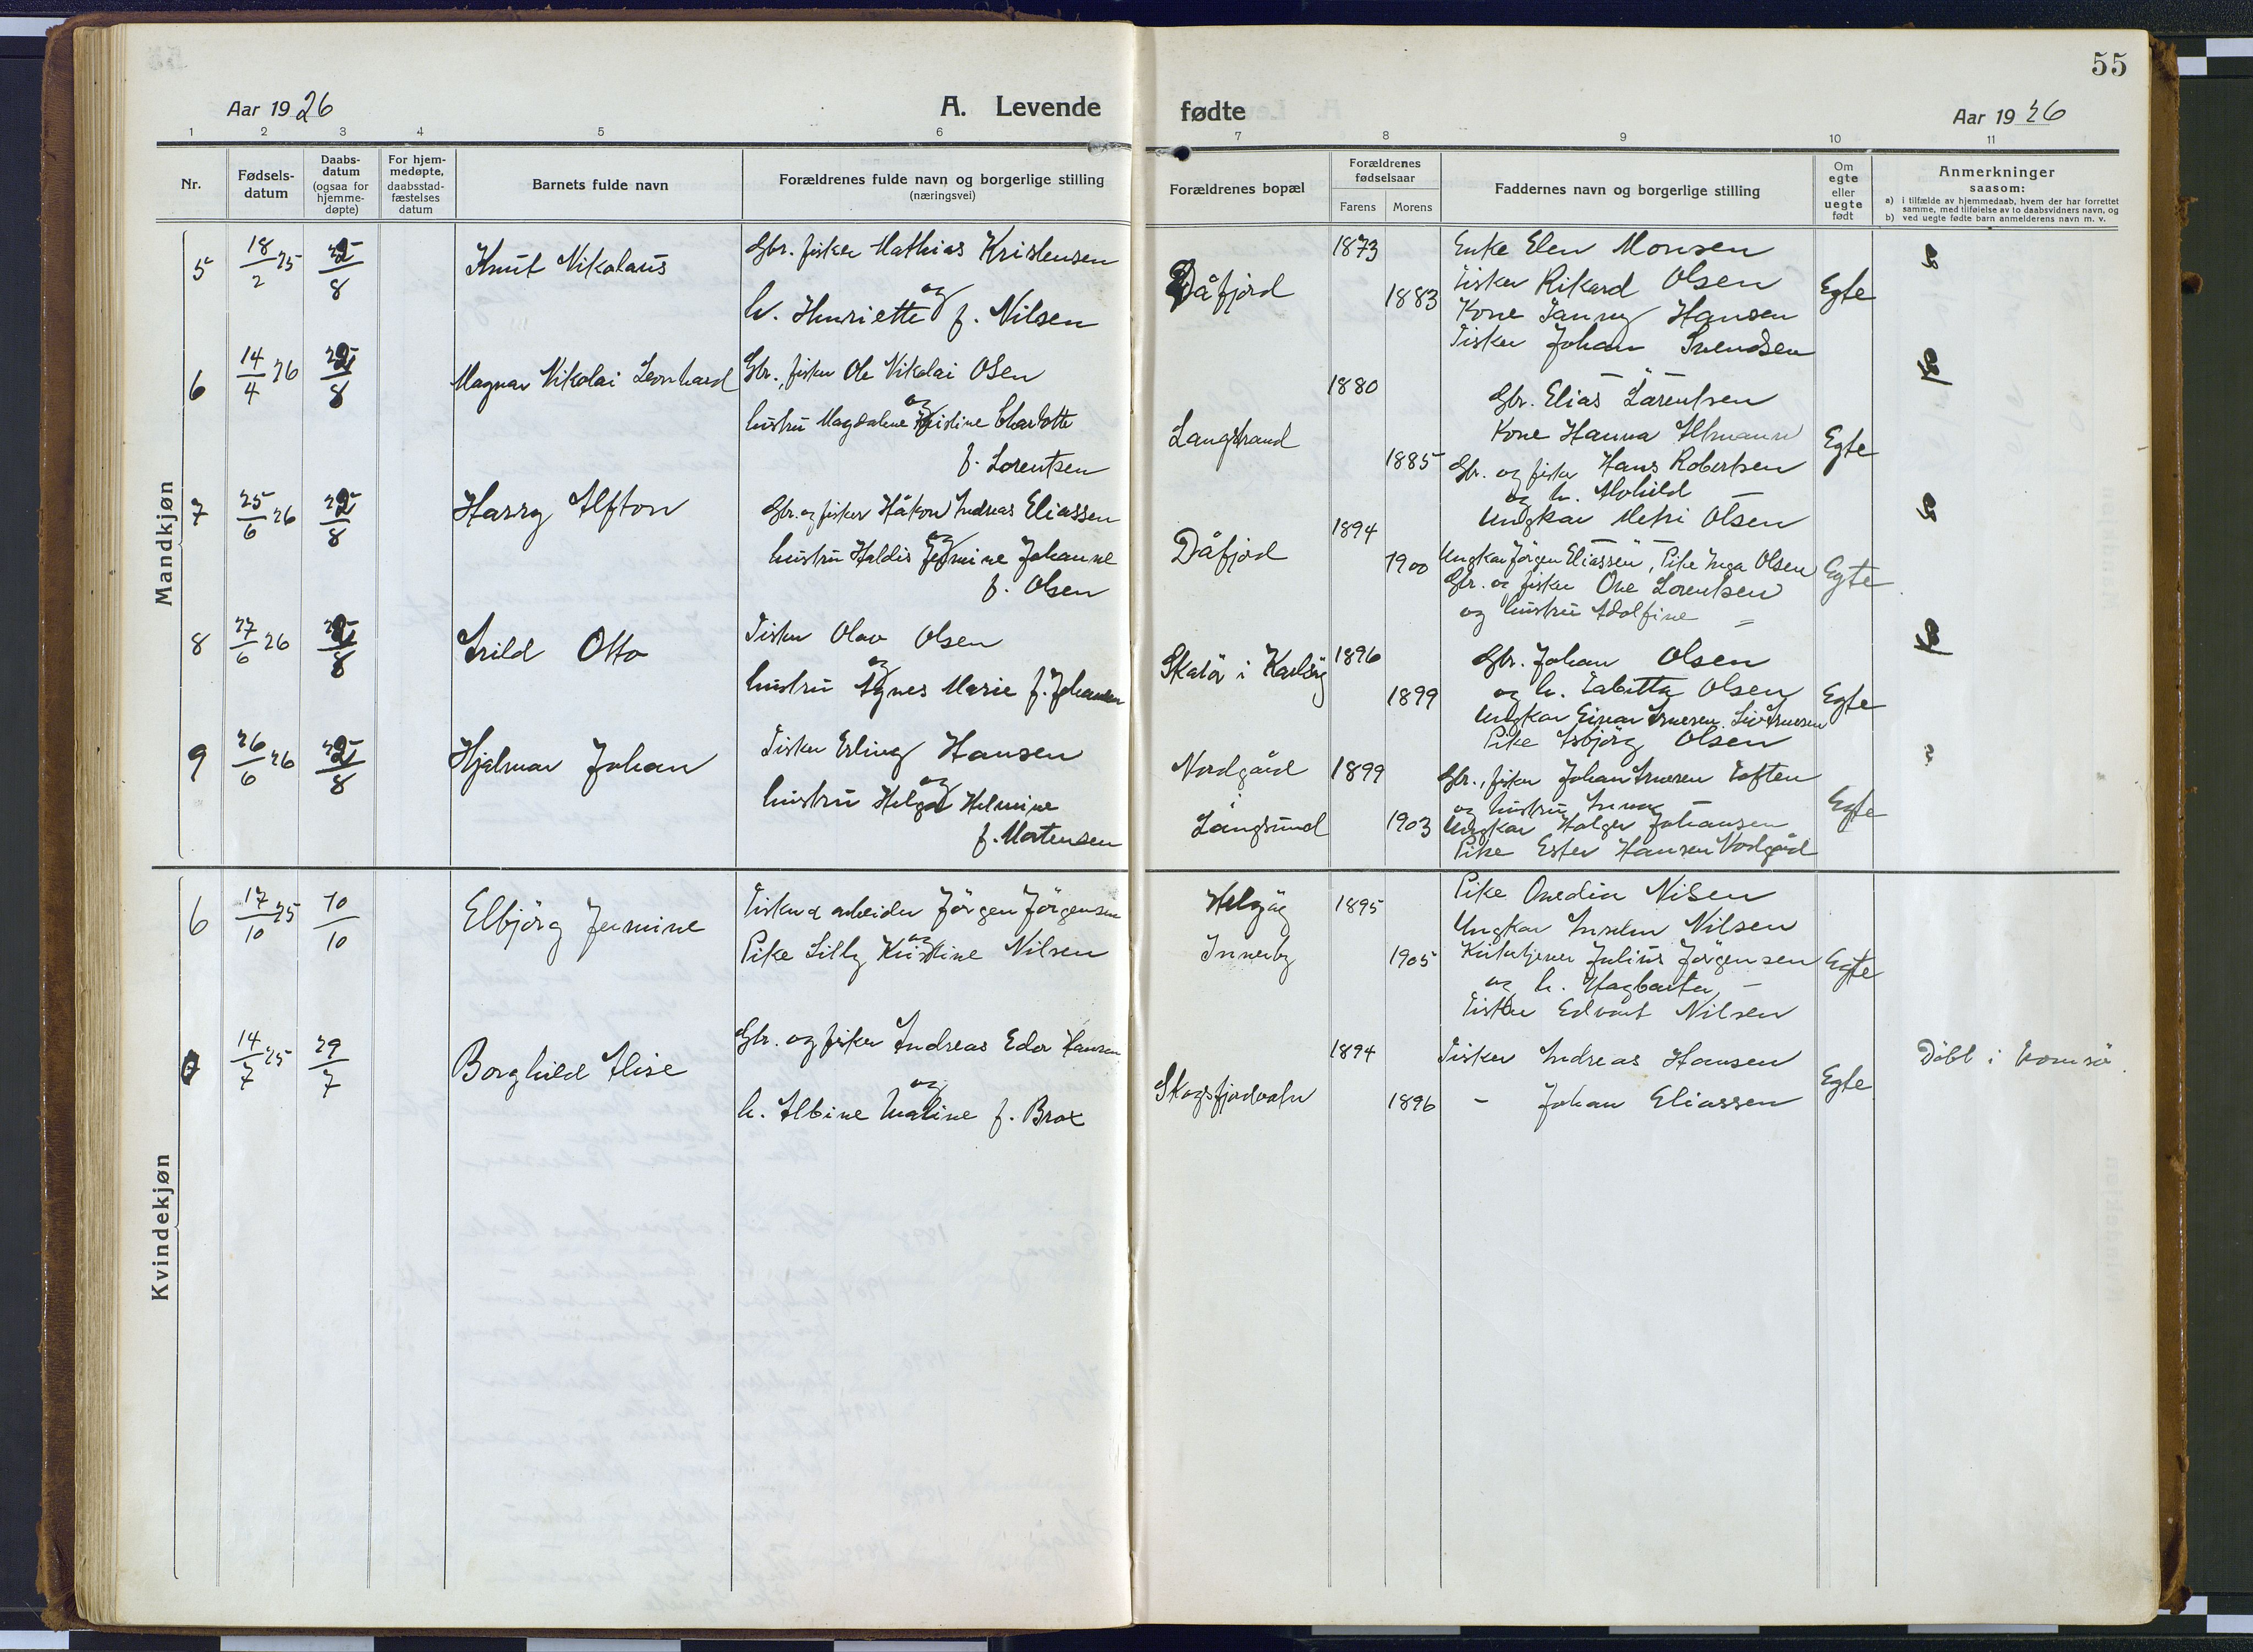 55
Aar 1926
A. Levende
fødte
Aar 1926
1 2 3 4 5 6 7 8 9 10 11
Nr.
Fødsels-
datum
Daabs-
datum
(ogsaa for
hjemme-
døpte)
For hjem-
medøpte,
daabsstad-
fæstelses
datum
Barnets fulde navn
Forældrenes fulde navn og borgerlige stilling
(næringsvei)
Forældrenes bopæl
Forældrenes
fødselsaar
Farens Morens
Faddernes navn og borgerlige stilling
Om
egte
eller
uegte
født
Anmerkninger
saasom:
a) i tilfælde av hjemmedaab, hvem der har forrettet
samme, med tilføielse av to daabsvidners navn, og
b) ved uegte fødte barn anmelderens navn m. v.
Mandkjøn
5 18/2 25 22/8 Knut Nikolaus
Gbr. fisker Mathias Kristensen
og
h. Henriette f. Nilsen
Dåfjord
1873
1883
Enke Elen Monsen
Fisker Rikard Olsen
Kone Janny Hansen
Fisker Johan Svendsen
Egte
6 14/4 26 22/8 Magnar Nikolai Leonhard
Gbr., fisker Ole Nikolai Olsen
og
hustru Magdalene Kristine Charlotte
f. Lorentsen
Langstrand
1880
1885
Gbr. Elias Larentsen
Kone Hanna Altmann
Gbr. og fisker Hans Robertsen
og h. Alvhild –
Ungkar Metri Olsen
Egte
7 25/6 26 22/8 Harry Alfton
Gbr. og fisker Håkon Andreas Eliassen
og
hustru Haldis Jermine Johanne
f. Olsen
Dåfjord
1894
1900
Ungkar Jørgen Eliassen, Pike Inga Olsen
Gbr. og fisker Ove Lorentsen
og hustru Adolfine –
Egte
8 27/6 26 22/8 Arild Otto
Fisker Olav Olsen
og
hustru Agnes Marie f. Johansen
Skatør i Karlsøy
1896
1899
Gbr. Johan Olsen
og h. Tabitta Olsen
Ungkar Einar Arnesen
Pike Asbjørg Olsen
Egte
9 26/6 26 22/8 Hjalmar Johan
Fisker Erling Hansen
og
hustru Helga Helmine
f. Mortensen
Nordgård
i
Langsund
1899
1903
Gbr., fisker Johan Arnesen Toften
og hustru Anna –
Ungkar Holger Johansen
Pike Ester Hansen Nordgård
Egte
Kvindekjøn
6 17/10 25 10/10 Elbjørg Jermine
Fisker & arbeider Jörgen Jörgensen
og
Pike Lilly Kristine Nilsen
Helgøy
Innerby
1895
1905
Pike Ovedia Nilsen
Ungkar Anselm Nilsen
Kirketjener Julius Jörgensen
og h. Hagbarta –
Fisker Edvart Nilsen
Egte
14/7 25 29/7 Borghild Alise
Gbr. og fisker Andreas Edor Hansen
og
h. Albine Maline f. Brox
Skogsfjordvatn
1894
1896
Fisker Andreas Hansen
– Johan Eliassen
Egte
Döbt i Tromsö.